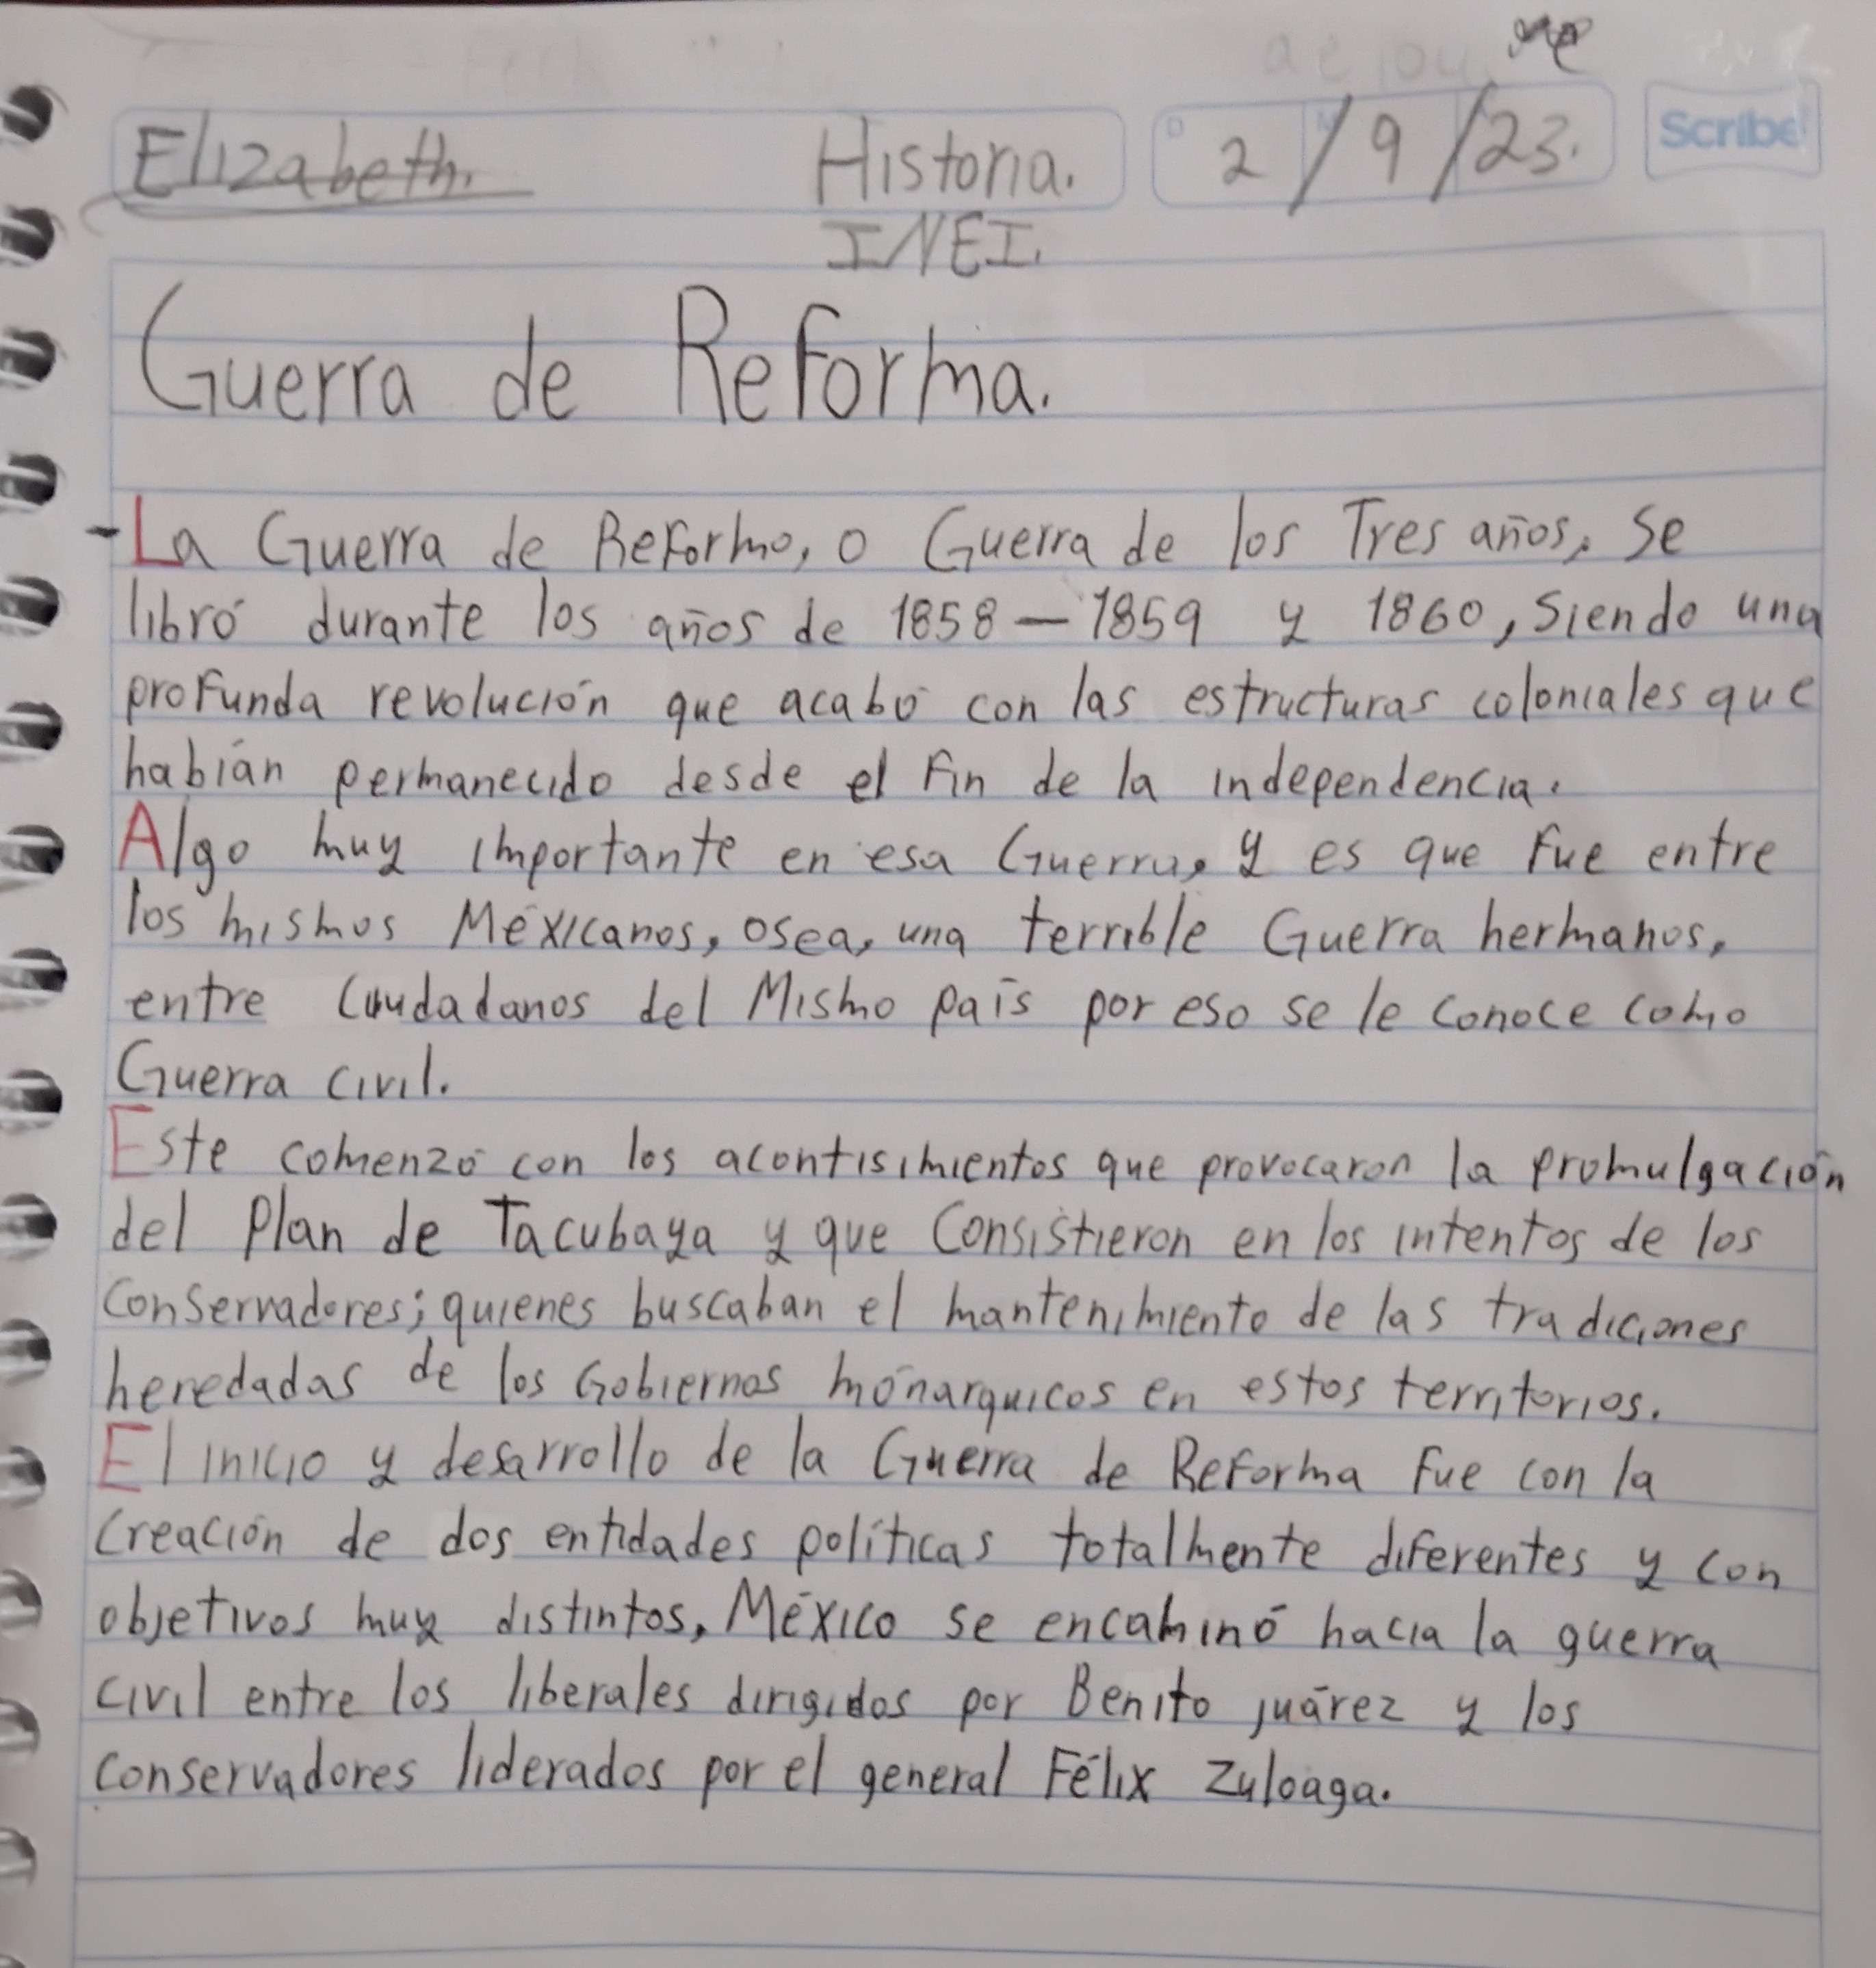 Elizabeth. Historia. D 2/9/23. Scribe
INEI.
Guerra de Reforma.
-La Guerra de Reforma, o Guerra de los Tres años, Se
libró durante los años de 1858-1859 y 1860, Siendo una
profunda revolución que acabó con las estructuras coloniales que
habían permanecido desde el Fin de la independencia.
Algo muy importante en esa Guerra, y es que Fue entre
los mismos Méxicanos, osea, una terrible Guerra hermanos,
entre Ciudadanos del Mismo país por eso se le conoce como
Guerra civil.
Este comenzó con los acontisimientos que provocaron la promulgación
del Plan de Tacubaya y que Consistieron en los intentos de los
Conservadores; quienes buscaban el mantenimiento de las tradiciones
heredadas de los Gobiernos mónarquicos en estos territorios.
El inicio y desarrollo de la Guerra de Reforma Fue con la
Creación de dos entidades políticas totalmente diferentes y con
objetivos muy distintos, México se encaminó hacia la guerra
civil entre los liberales dirigidos por Benito juárez y los
conservadores liderados por el general Félix Zuloaga.